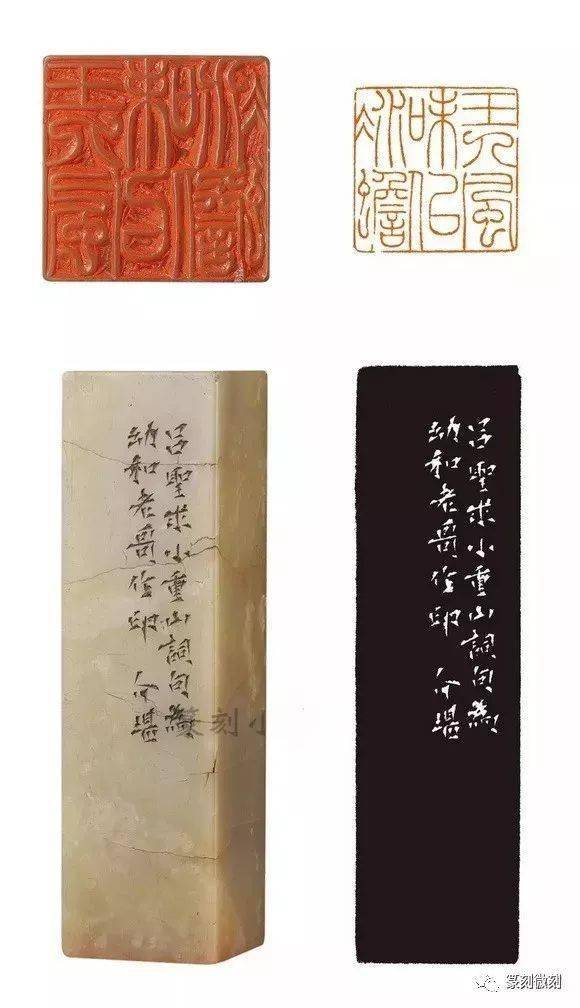 呂聖求小重山詞句為
幼和老哥作印 介堪
呂聖求小重山詞句為
幼和老哥作印 介堪
篆刻小
篆刻微刻